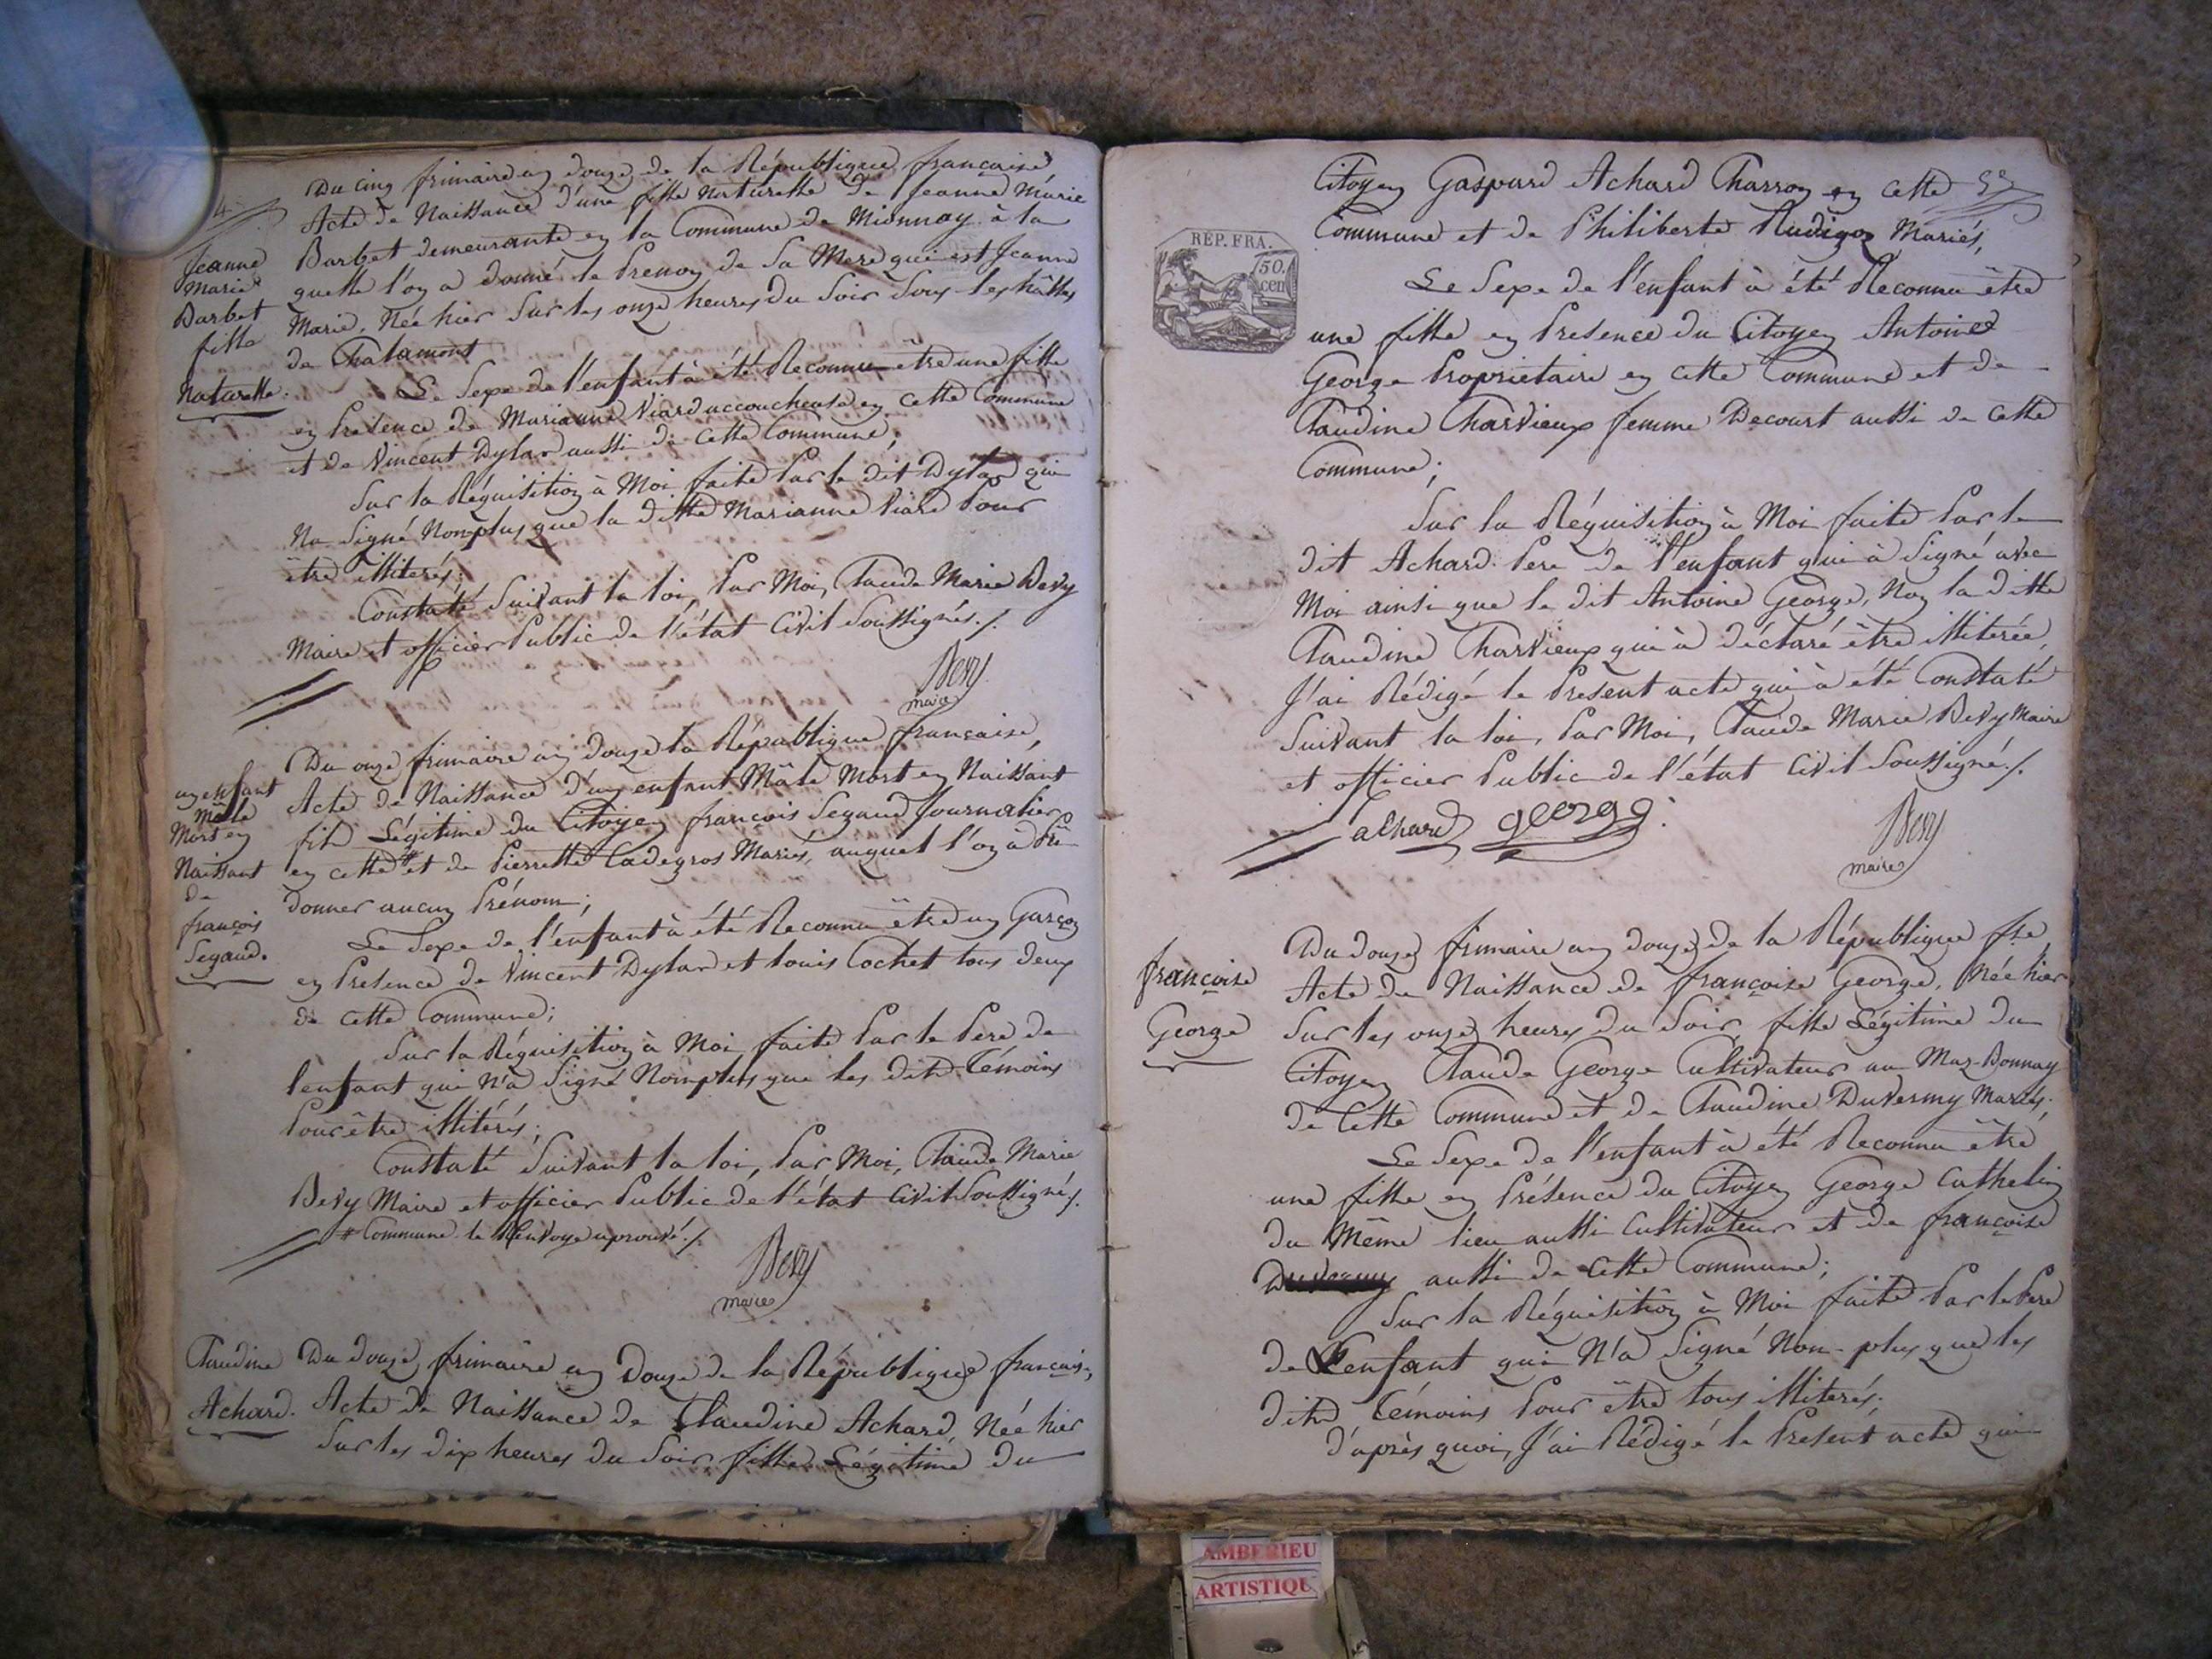 4
Jeanne
Marie
Barbet
fille
Naturelle.
Du cinq frimaire an douze de la République française
Acte de Naissance d'une fille Naturelle de Jeanne Marie
Barbet demeurante en la Commune de Mionnay à la
quelle l'on a donné le Prenom de Sa Mere qui est Jeanne
Marie, Née hier Sur les onze heures du Soir Sous les hâlles
de Chalamont
Le Sexe de l'enfant à été Reconnu être une fille
en Presence de Marianne Viard accoucheuse en cette Commune
et de Vincent Dylas aussi de cette Commune,
Sur la Réquisition à Moi faite Par le dit Dylas qui
Na Signé Nomplus que la ditte Marianne Viard Pour
être illiterés;
Constaté Suivant la loi, Par Moi, Claude Marie Bevy
Maire et officier Public de l'état Civil Soussignés./.
Bevy
maire
un enfant
Mâle
Mort en
Naissant
de
françois
Segaud.
Du onze frimaire an douze la République française,
Acte de Naissance d'un enfant Mâle Mort en Naissant
fils Légitime du Citoyen françois Segaud Journalier
en cette # et de Pierrette Cadegros Mariés, auquel l'on a Pû
donner aucun Prénom;
Le Sexe de l'enfant à été Reconnu être un Garçon
en Presence de Vincent Dylas et Louis Cochet tous deux
de cette Commune;
Sur la Réquisition à Moi faite Par le Pere de
l'enfant qui N'a Signé Nomplus que les dits Témoins
Pour être illiterés;
Constaté Suivant la loi, Par Moi, Claude Marie
Bevy Maire et officier Public de l'état Civil Soussignés./.
# Commune le Renvoye aprouvé./.
Bevy
maire
Claudine
Achard.
Du douze frimaire an Douze de la République française,
Acte de Naissance de Claudine Achard, Née hier
Sur les dix heures du Soir fille Légitime du
Citoyen Gaspard Achard Charron en cette
Commune et de Philiberte Rudigoz Mariés,
REP. FRA.
50.
cen
Le Sexe de l'enfant à été Reconnu être
une fille en Presence du Citoyen Antoine
George Propriétaire en cette Commune et de
Claudine Charvieux femme Decourt aussi de cette
Commune;
Sur la Réquisition à Moi faite Par le
dit Achard Pere de l'enfant qui à Signé avec
Moi ainsi que le dit Antoine George, Non la ditte
Claudine Charvieux qui à déclaré être illiterée,
J'ai Rédigé le Present acte qui à été Constaté
Suivant la loi, Par Moi, Claude Marie Bevy Maire
et officier Public de l'état Civil Soussigné./.
achard george
Bevy
maire
françoise
George
Du douze frimaire an douze de la République fse
Acte de Naissance de françoise George, Née hier
Sur les onze heures du Soir, fille Légitime du
Citoyen Claude George Cultivateur au Maz-Bonnay
de Cette Commune et de Claudine Duvermy Mariés;
Le Sexe de l'enfant à été Reconnu être
une fille en Présence du Citoyen George Cathelin
du Même lieu aussi Cultivateur et de françoise
aussi de Cette Commune;
Sur la Réquisition à Moi faite Par le Pere
de l'enfant qui N'a Signé Non-plus que les
dits Témoins Pour être tous illiterés;
d'après quoi, J'ai Rédigé le Present acte qui
AMBERIEU
ARTISTIQU